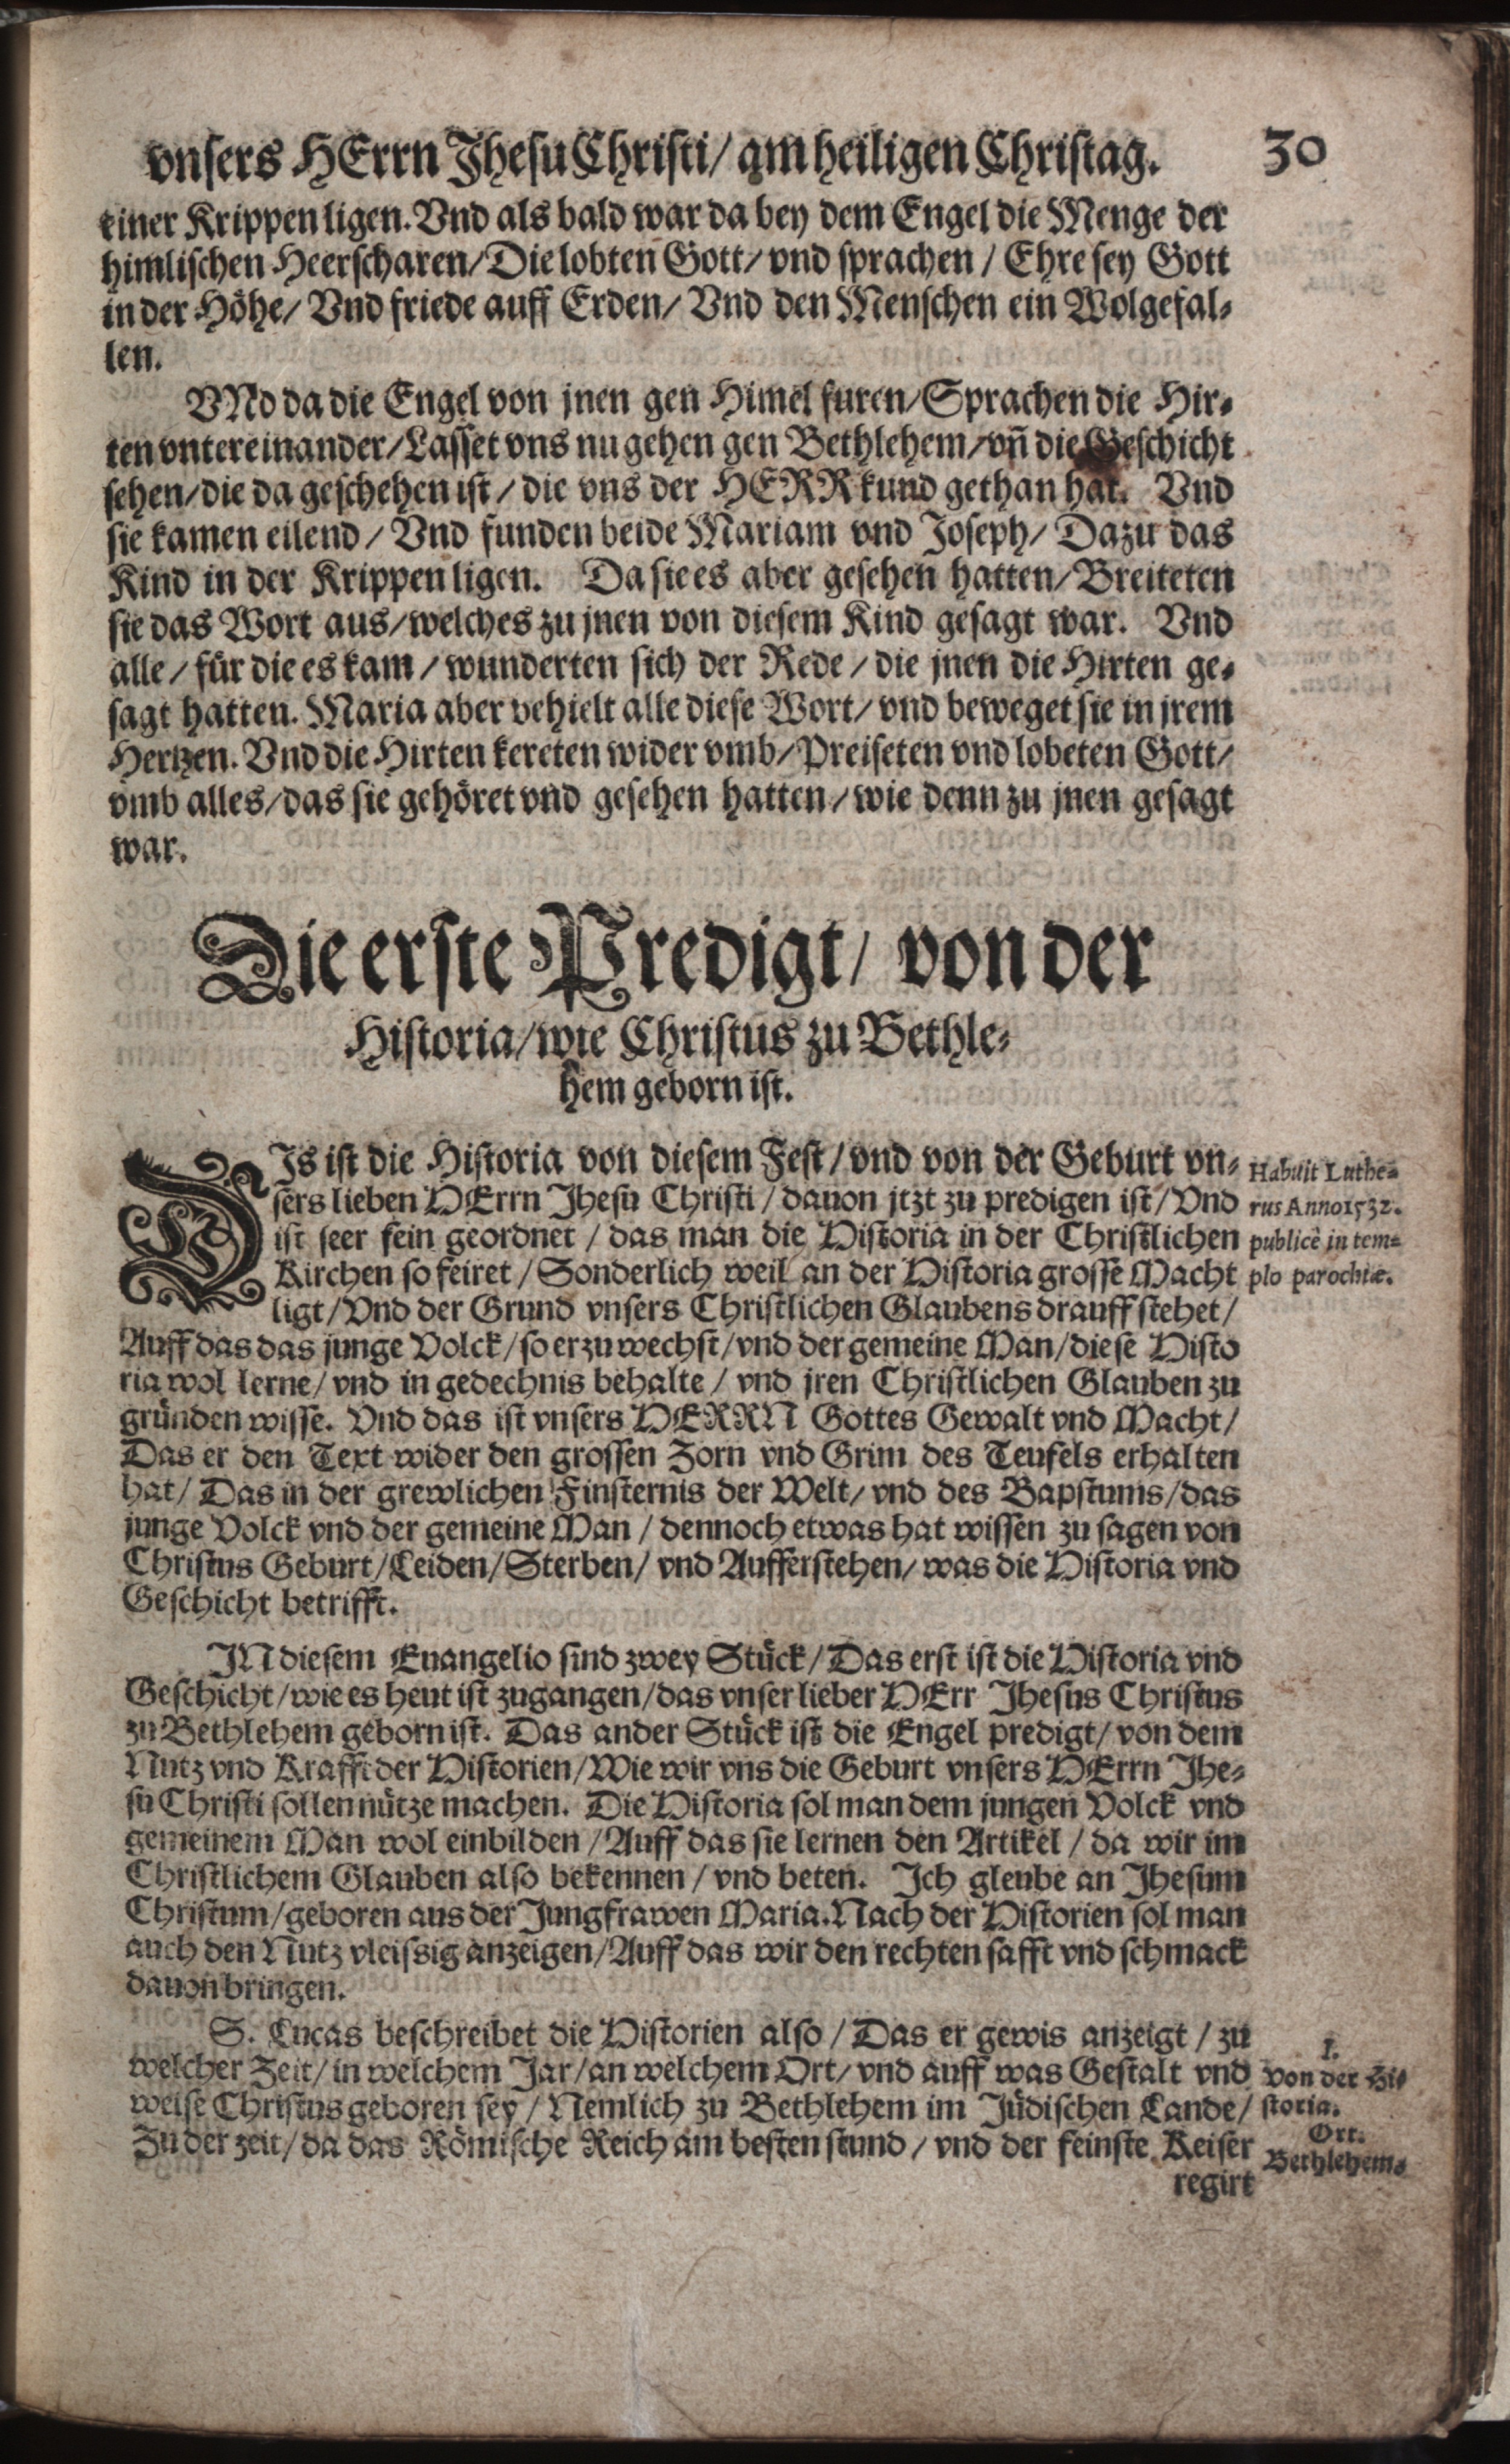 vnsers HErrn Jhesu Christi / am heiligen Christag. 30
einer Krippen ligen. Vnd als bald war da bey dem Engel die Menge der
himlischen Heerscharen / Die lobten Gott / vnd sprachen / Ehre sey Gott
in der Höhe / Vnd friede auff Erden / Vnd den Menschen ein Wolgefal-
len.
VNd da die Engel von jnen gen Himel furen / Sprachen die Hir-
ten vntereinander / Lasset vns nu gehen gen Bethlehem / vñ die Geschicht
sehen / die da geschehen ist / die vns der HERR kund gethan hat. Vnd
sie kamen eilend / Vnd funden beide Mariam vnd Joseph / Dazu das
Kind in der Krippen ligen. Da sie es aber gesehen hatten / Breiteten
sie das Wort aus / welches zu jnen von diesem Kind gesagt war. Vnd
alle / für die es kam / wunderten sich der Rede / die jnen die Hirten ge-
sagt hatten. Maria aber behielt alle diese Wort / vnd beweget sie in jrem
Hertzen. Vnd die Hirten kereten wider vmb / Preiseten vnd lobeten Gott /
vmb alles / das sie gehöret vnd gesehen hatten / wie denn zu jnen gesagt
war.
Die erste Predigt / von der
Historia / wie Christus zu Bethle-
hem geborn ist.
DIs ist die Historia von diesem Fest / vnd von der Geburt vn-
sers lieben HErrn Jhesu Christi / dauon jtzt zu predigen ist / Vnd
ist seer fein geordnet / das man die Historia in der Christlichen
Kirchen so feiret / Sonderlich weil an der Historia grosse Macht
ligt / Vnd der Grund vnsers Christlichen Glaubens drauff stehet /
Auff das das junge Volck / so erzu wechst / vnd der gemeine Man / diese Histo
ria wol lerne / vnd in gedechnis behalte / vnd jren Christlichen Glauben zu
gründen wisse. Vnd das ist vnsers HERRN Gottes Gewalt vnd Macht /
Das er den Text wider den grossen Zorn vnd Grim des Teufels erhalten
hat / Das in der grewlichen Finsternis der Welt / vnd des Bapstums / das
junge Volck vnd der gemeine Man / dennoch etwas hat wissen zu sagen von
Christus Geburt / Leiden / Sterben / vnd Aufferstehen / was die Historia vnd
Geschicht betrifft.
Habuit Luthe-
rus Anno 1532.
publicè in tem-
plo parochiæ.
JN diesem Euangelio sind zwey Stück / Das erst ist die Historia vnd
Geschicht / wie es heut ist zugangen / das vnser lieber HErr Jhesus Christus
zu Bethlehem geborn ist. Das ander Stück ist die Engel predigt / von dem
Nutz vnd Krafft der Historien / Wie wir vns die Geburt vnsers HErrn Jhe-
su Christi sollen nütze machen. Die Historia sol man dem jungen Volck vnd
gemeinem Man wol einbilden / Auff das sie lernen den Artikel / da wir im
Christlichem Glauben also bekennen / vnd beten. Ich gleube an Jhesum
Christum / geboren aus der Jungfrawen Maria. Nach der Historien sol man
auch den Nutz vleissig anzeigen / Auff das wir den rechten safft vnd schmack
dauon bringen.
S. Lucas beschreibet die Historien also / Das er gewis anzeigt / zu
welcher Zeit / in welchem Jar / an welchem Ort / vnd auff was Gestalt vnd
weise Christus geboren sey / Nemlich zu Bethlehem im Jüdischen Lande /
Zu der zeit / da das Römische Reich am besten stund / vnd der feinste Keiser
regirt
I.
Von der Hi-
storia.
Ort.
Bethlehem.